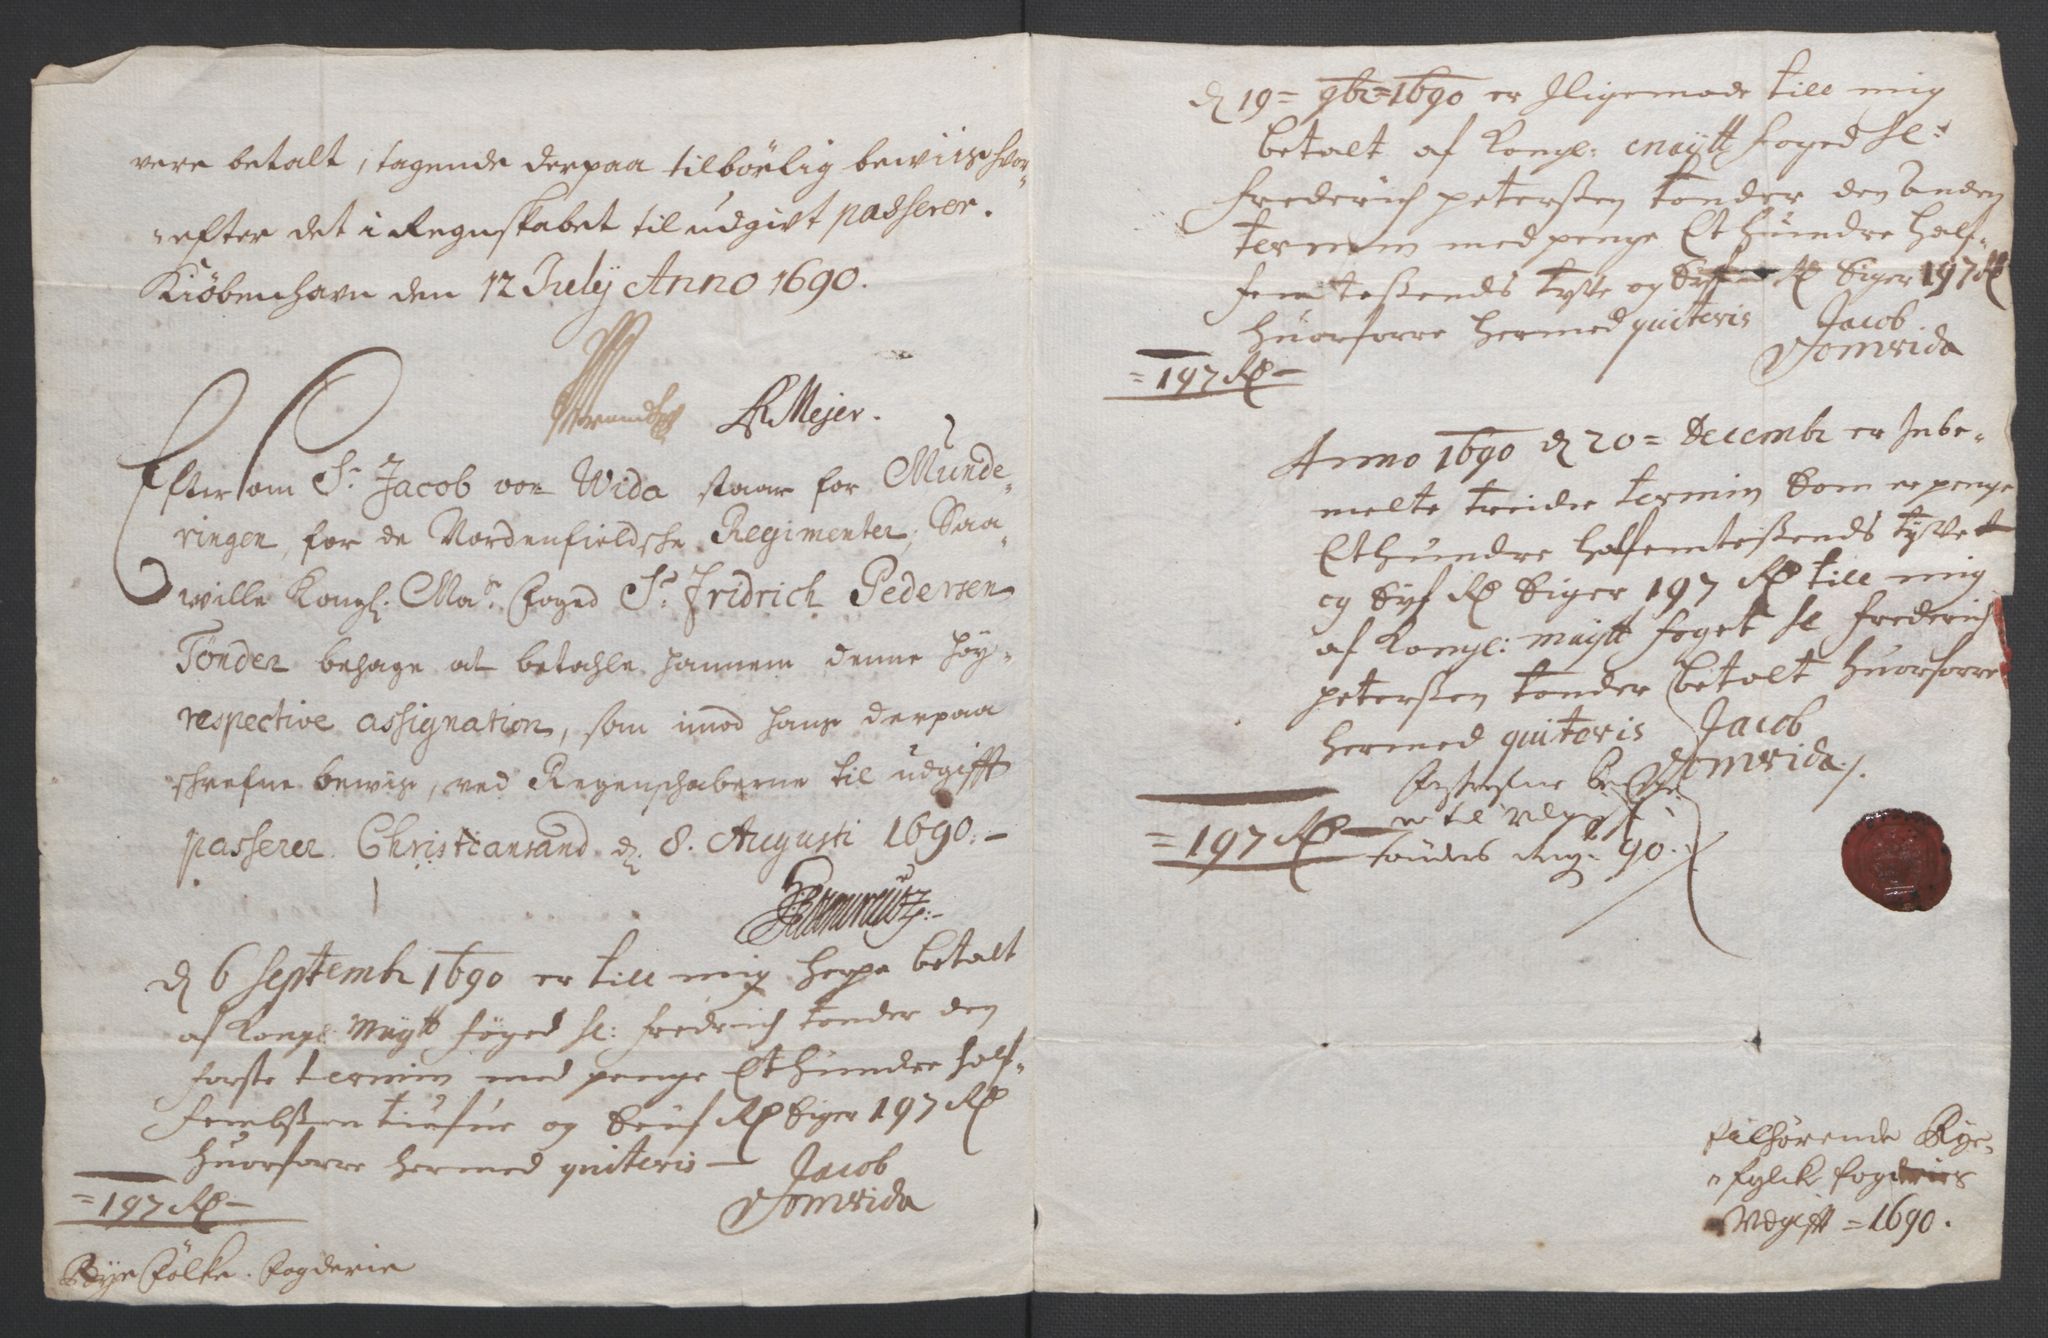 vere betalt, tagende derpaa tilbörlig bewiis hvor-
efter det i Regnskabet til udgivt passerer.
Kiöbenhavn den 12 July Anno 1690.
RMejer.
Efter som Sr. Jacob von Wida staar for Munde-
ringen, for de Nordenfieldsche Regimenter, Saa
wille Kongl. Mas. Foged Sr. Fridrich Pedersen
Tönder behage at betahle hannem denne höy-
respective assignation, som imod hans derpaa
schrefne bewiis, ved Regenschaberne til udgifft
passerer. Christiansand d. 8. Augusti 1690.-
d 6 Septembr 1690 er till mig herpa betalt
af Kongl Maÿtt föged Sl: fredrich tonder den
forste termin med penge Et hundre half-
og Seuf Rd Siger 197 Rd
huorforre hermed quiteris
Jacob
Vomwida
= 197 Rd -
Rye Fölke. Fogderie
d 19= 9br=1690 er Iligemade till mig
betalt af Kongl: Maÿtt foged Sl:
frederich peterßen tonder den Anden
termin med penge Et hundre half-
fem teßends tyffe og Syf Rd Siger 197 Rd
huorforre hermed quiteris
Jacob
Vomwida
= 197 Rd -
Anno 1690 d 20= Decembr er Inbe-
melte treide termin Som er penge
Et hundre halfemteßends tyffet
og Syf Rd Siger 197 Rd till mig
af Kongl: Maÿtt foget Sl frederich
peterßen tonder betalt huorforre
hermed quiteris
Jacob
Vomwida ./.
= 197 Rd
tönders Regn: 90.
Tilhörende Rye-
fylck fogderies
Udgifft = 1690.